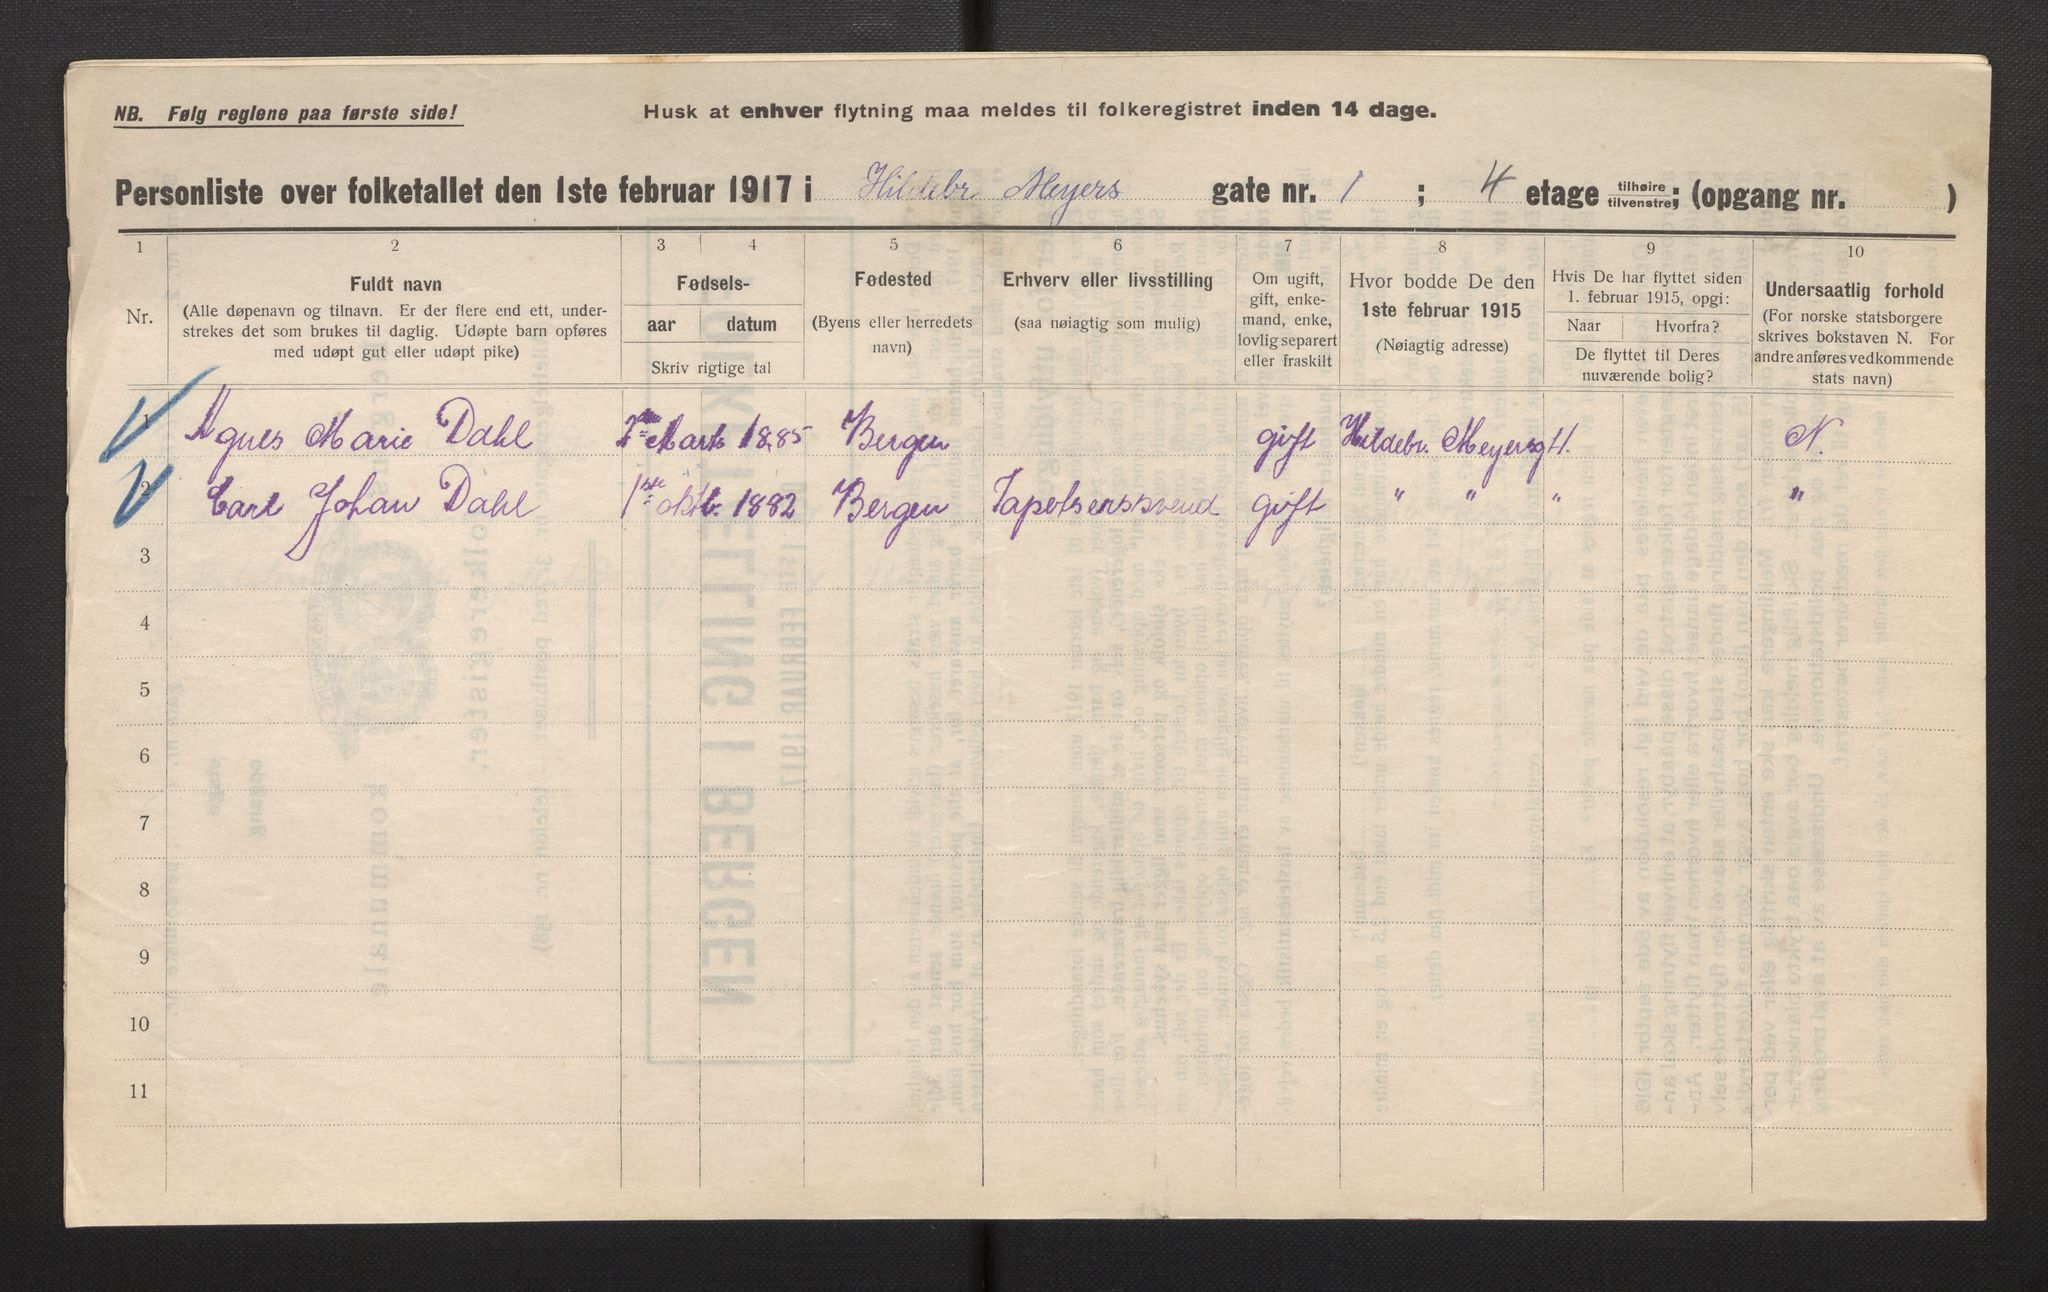 NB. Følg reglene paa første side!
Husk at enhver flytning maa meldes til folkeregistret inden 14 dage.
Personliste over folketallet den 1ste februar 1917 i Hildebr Meyers gate nr. 1 ; 4 etage tilhøire tilvenstre; (opgang nr. )
1 2 3 4 5 6 7 8 9 10
Nr.
Fuldt navn
(Alle døpenavn og tilnavn. Er der flere end ett, under-
strekes det som brukes til daglig. Udøpte barn opføres
med udøpt gut eller udøpt pike)
Fødsels-
aar datum
Skriv rigtige tal
Fødested
(Byens eller herredets
navn)
Erhverv eller livsstilling
(saa nøiagtig som mulig)
Om ugift,
gift, enke-
mand, enke,
lovlig separert
eller fraskilt
Hvor bodde De den
1ste februar 1915
(Nøiagtig adresse)
Hvis De har flyttet siden
1. februar 1915, opgi:
Naar Hvorfra?
De flyttet til Deres
nuværende bolig?
Undersaatlig forhold
(For norske statsborgere
skrives bokstaven N. For
andre anføres vedkommende
stats navn)
1 Agnes Marie Dahl Marts 1885 Bergen gift Hildebr. Meyersg N.
2 Carl Johan Dahl 1ste oktb. 1882 Bergen Tapetserssvend gift " " " "
3
4
5
6
7
8
9
10
11